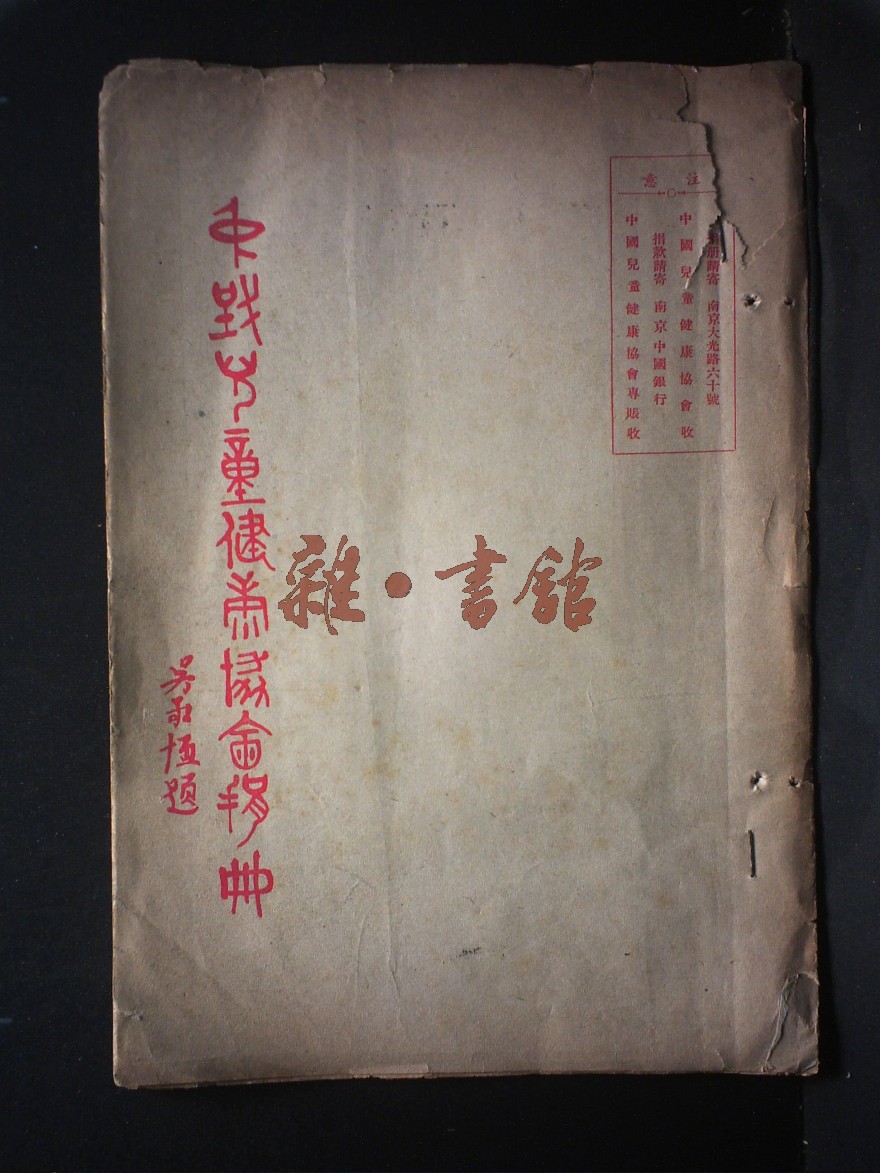 注意
捐册請寄 南京大光路六十號
中國兒童健康協會收
捐款請寄 南京中國銀行
中國兒童健康協會專賬收
中國兒童健康協會捐冊
吳敬恆題
雜·書館